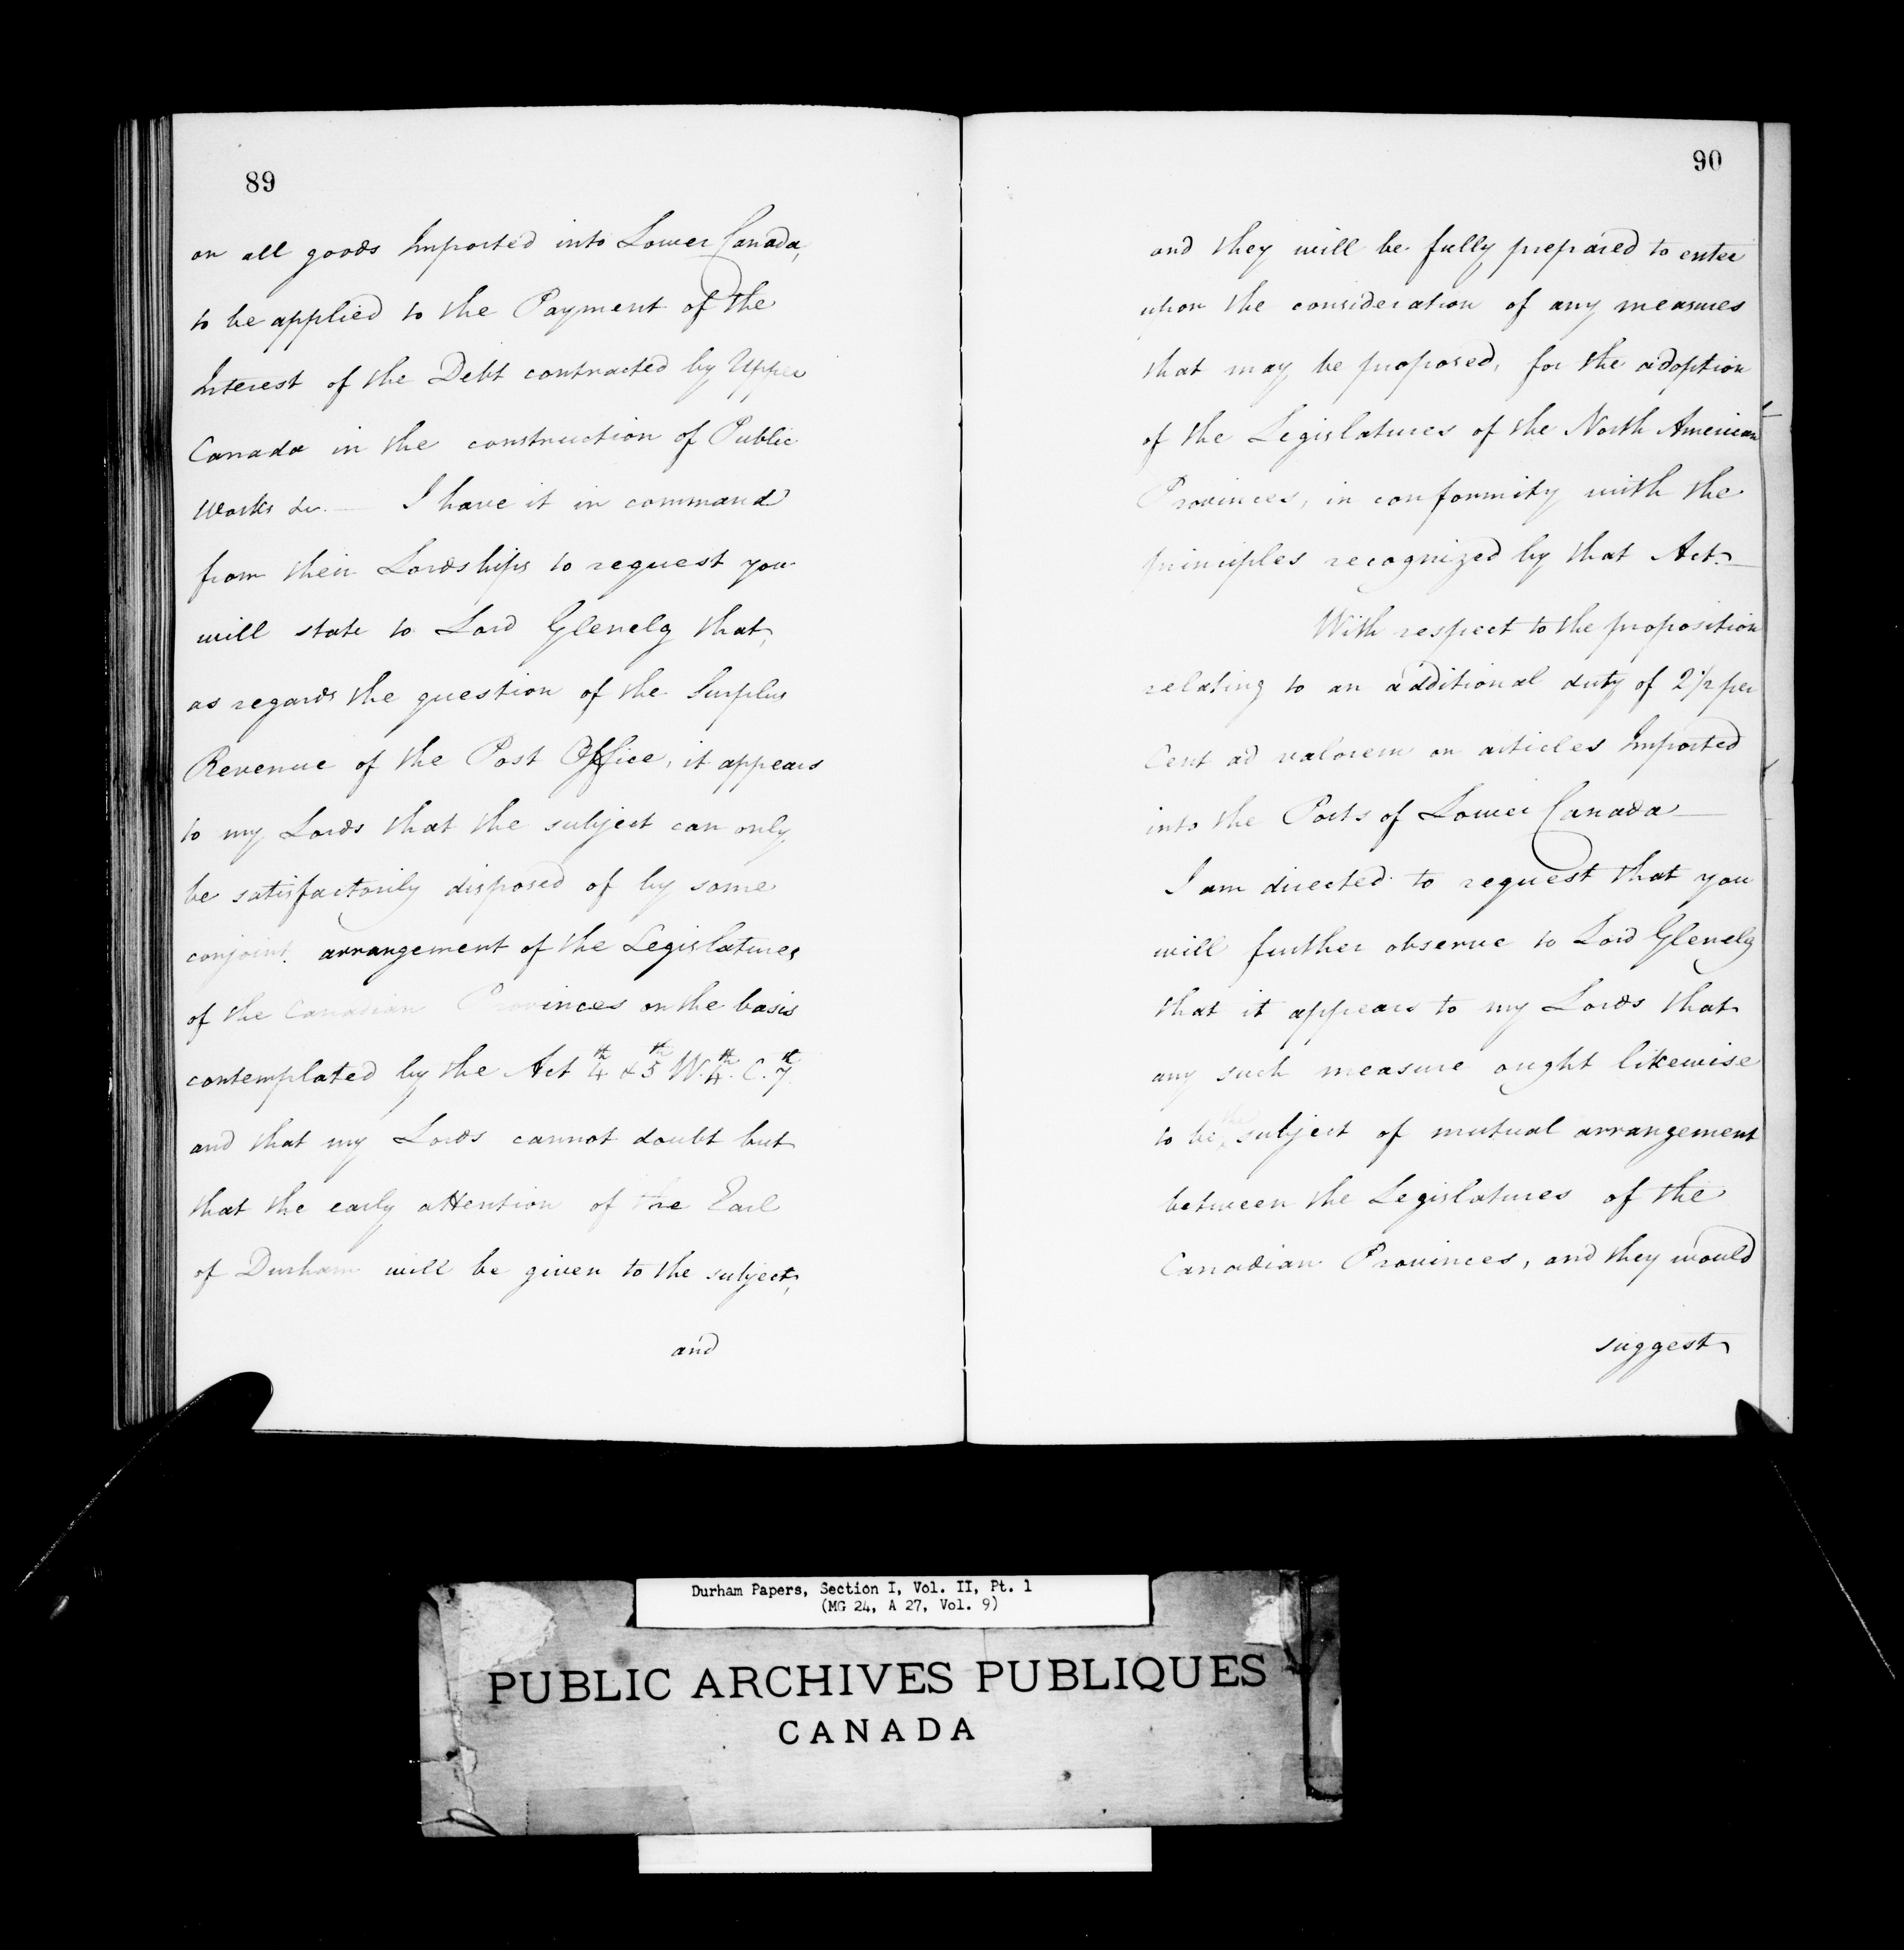 89
on all goods Imported into Lower Canada,
to be applied to the Payment of the
Interest of the Debt contracted by Upper
Canada in the construction of Public
Works &c. — I have it in command
from their Lordships to request you
will state to Lord Glenelg that,
as regards the question of the Surplus
Revenue of the Post Office, it appears
to my Lords that the subject can only
be satisfactorily disposed of by some
conjoint arrangement of the Legislatures
of the Canadian Provinces on the basis
contemplated by the Act 4th & 5th W. 4th. C. 7th
and that my Lords cannot doubt but
that the early attention of the Earl
of Durham will be given to the subject,
and
90
and they will be fully prepared to enter
upon the consideration of any measures
that may be proposed, for the adoption
of the Legislatures of the North American
Provinces, in conformity with the
principles recognized by that Act. —
With respect to the proposition
relating to an additional duty of 2 1/2 per
Cent ad valorem on articles Imported
into the Ports of Lower Canada —
I am directed to request that you
will further observe to Lord Glenelg
that it appears to my Lords that
any such measure ought likewise
to be the subject of mutual arrangement
between the Legislatures of the
Canadian Provinces, and they would
suggest
Durham Papers, Section I, Vol. II, Pt. 1
(MG 24, A 27, Vol. 9)
PUBLIC ARCHIVES PUBLIQUES
CANADA